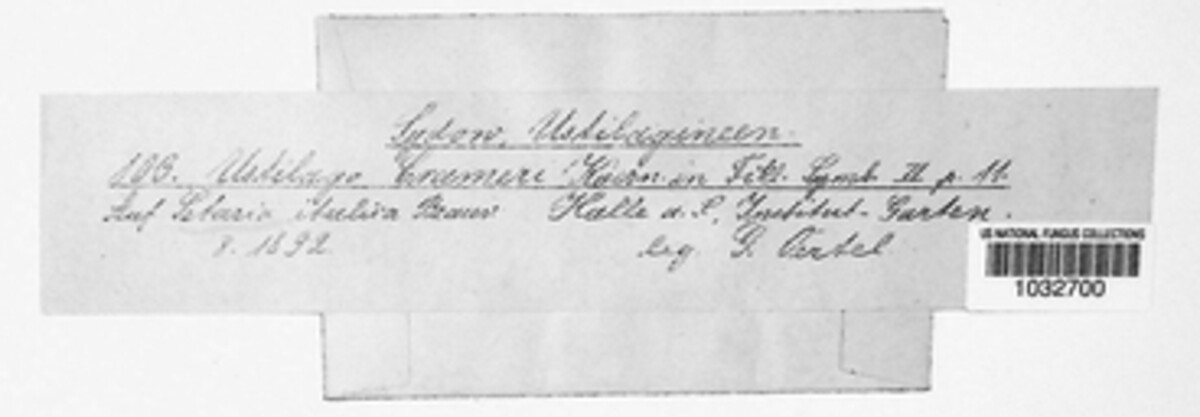 Sydow, Ustilagineen.
103. Ustilago Crameri Koern. in Fckl. Symb. III p. 11.
Auf Setaria italica Beauv. Halle a. S., Institut-Garten.
8. 1892 leg. G. Oertel
US NATIONAL FUNGUS COLLECTIONS
1032700